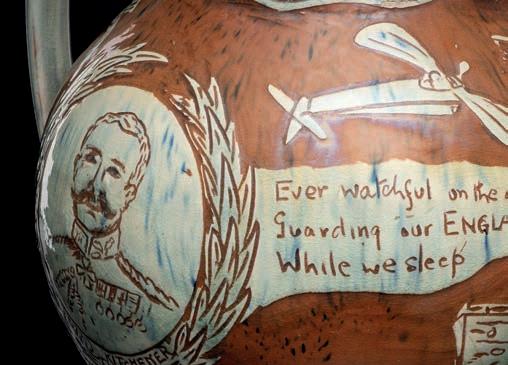 Ever watchful on the
Guarding our ENGLA
While we sleep
KITCHENER